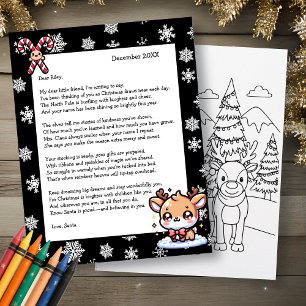 December 20XX
Dear Riley,
My dear little friend, I'm writing to say,
I've been thinking of you as Christmas draws near each day.
The North Pole is bustling with laughter and cheer,
And your name has been shining so brightly this year.
The elves tell me stories of kindness you've shown,
Of how much you've learned and how much you have grown.
Mrs. Claus always smiles when your name I repeat
She says you make the season extra merry and sweet.
Your stocking is ready, your gifts are prepared,
With ribbons and sparkles of magic we've shared.
So snuggle in warmly when you're tucked into bed,
That's when reindeer hooves will tip-tap overhead.
Keep dreaming big dreams and stay wonderfully you,
For Christmas is brighter with children like you.
And wherever you are, in all that you do,
Know Santa is proud—and believing in you.
Love, Santa